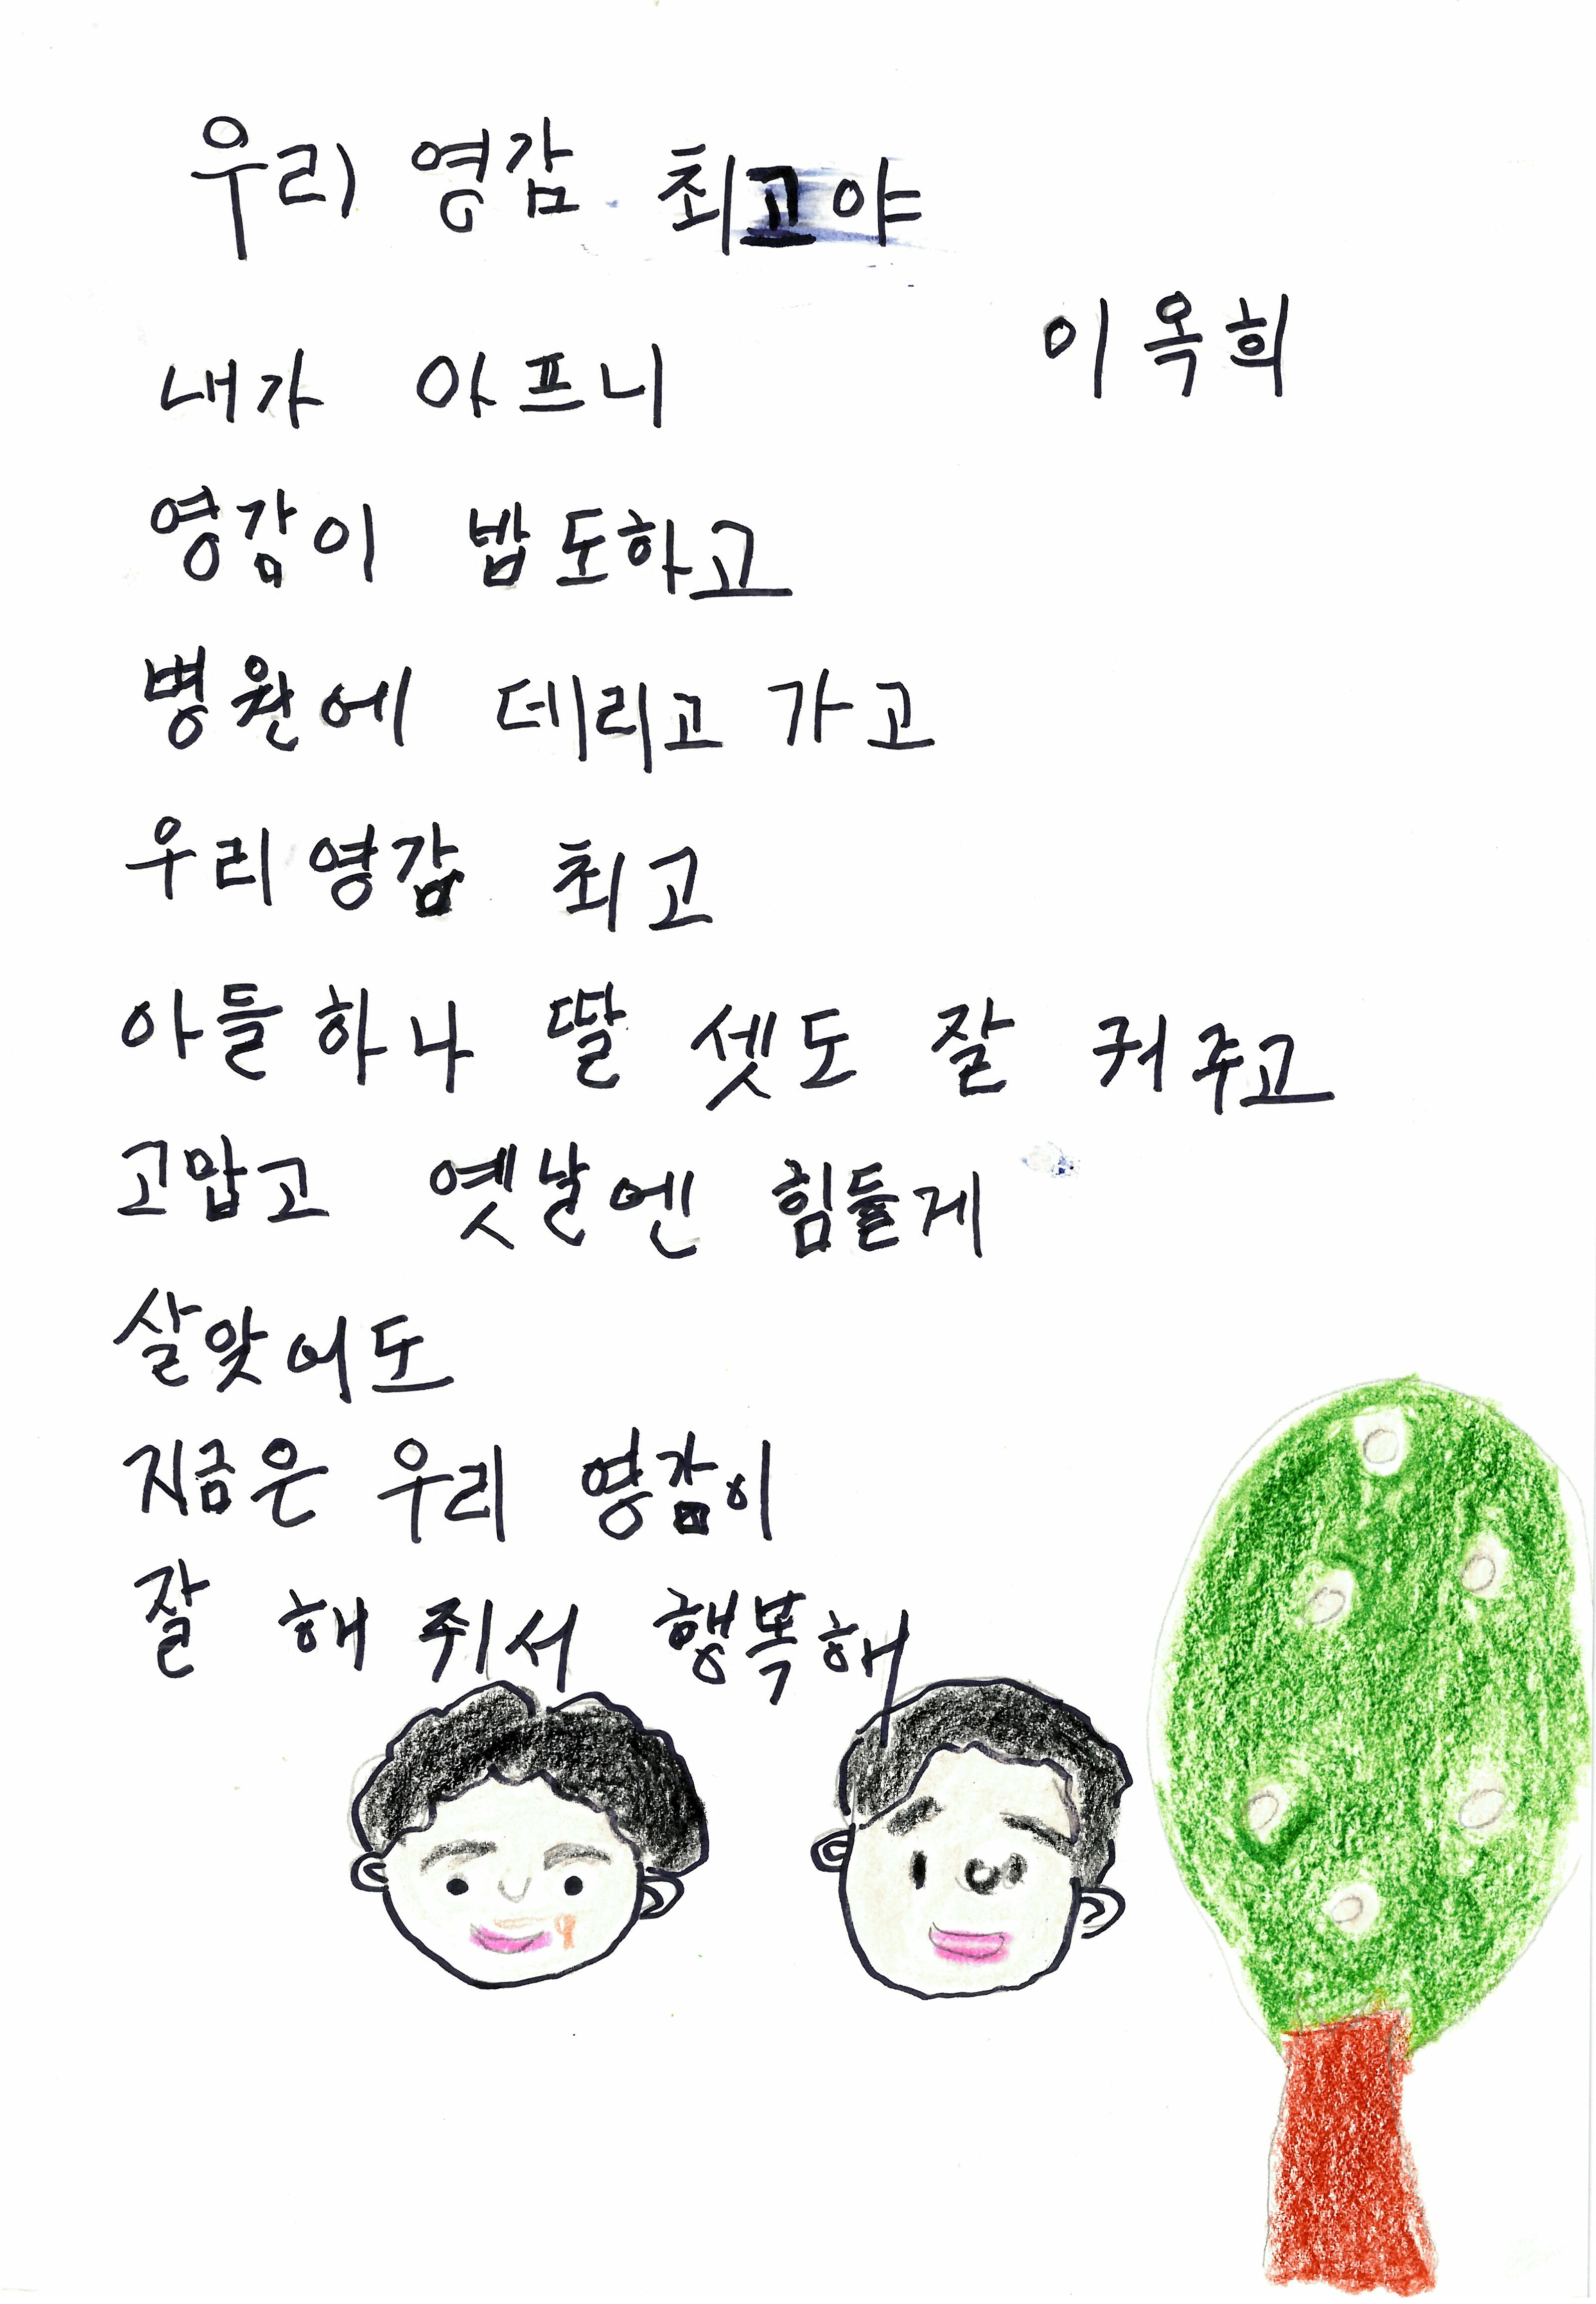 우리 영감 최고야
이옥희
내가 아프니
영감이 밥도하고
병원에 데리고 가고
우리영감 최고
아들하나 딸 셋도 잘 궈주고
고맙고 옛날엔 힘들게
살앗어도
지금은 우리 영감이
잘 해 쥐서 행복해